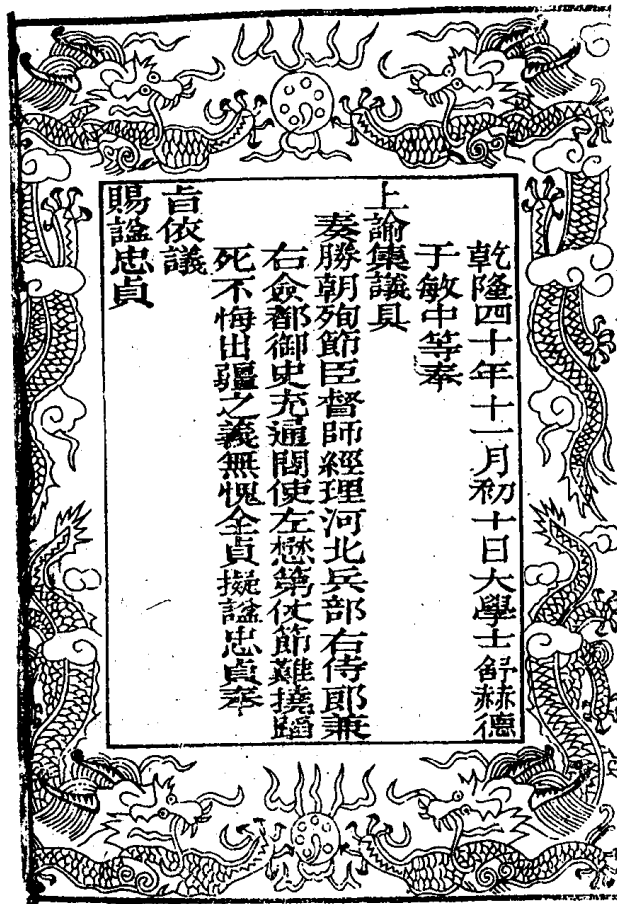 乾隆四十年十一月初十日大學士舒赫德
于敏中等奉
上諭集議具
奏勝朝殉節臣督師經理河北兵部右侍郎兼
右僉都御史充通問使左懋第仗節難撓蹈
死不悔出疆之義無愧全貞擬諡忠貞奉
旨依議
賜諡忠貞